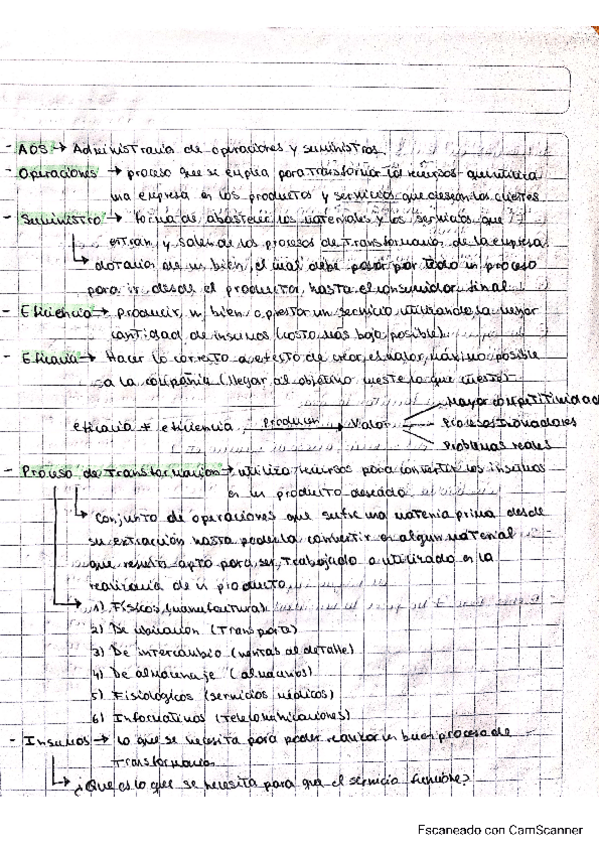 - AOS → Administración de operaciones y suministros.
- Operaciones → proceso que se emplea para transformar los recursos que utiliza
una empresa en los productos y servicios que desean los clientes
- Suministro → forma de abastecer los materiales y los servicios que
entran y salen de los procesos de transformación de la empresa
↳ dotación de un bien, el cual debe pasar por todo un proceso
para ir desde el productor, hasta el consumidor final
- Eficiencia → producir un bien o prestar un servicio utilizando la menor
cantidad de insumos (costo más bajo posible)
- Eficacia → Hacer lo correcto a efecto de crear el valor máximo posible
a la compañía (llegar al objetivo cueste lo que cueste)
Mayor competitividad
eficacia + eficiencia Producen → Valor Procesos Innovadores
Problemas reales
- Proceso de Transformación → utiliza recursos para convertir los insumos
en un producto deseado
↳ Conjunto de operaciones que sufre una materia prima desde
su extracción hasta poderla convertir en algún material
que resulta apto para ser trabajado o utilizado en la
realización de un producto
↳ 1) Físicos (manufactura)
2) De ubicación (Transporte)
3) De intercambio (ventas al detalle)
4) De almacenaje (almacenes)
5) Fisiológicos (servicios médicos)
6) Informativos (telecomunicaciones)
- Insumos → lo que se necesita para poder realizar un buen proceso de
transformación
↳ ¿Que es lo que se necesita para que el servicio funcione?
Escaneado con CamScanner